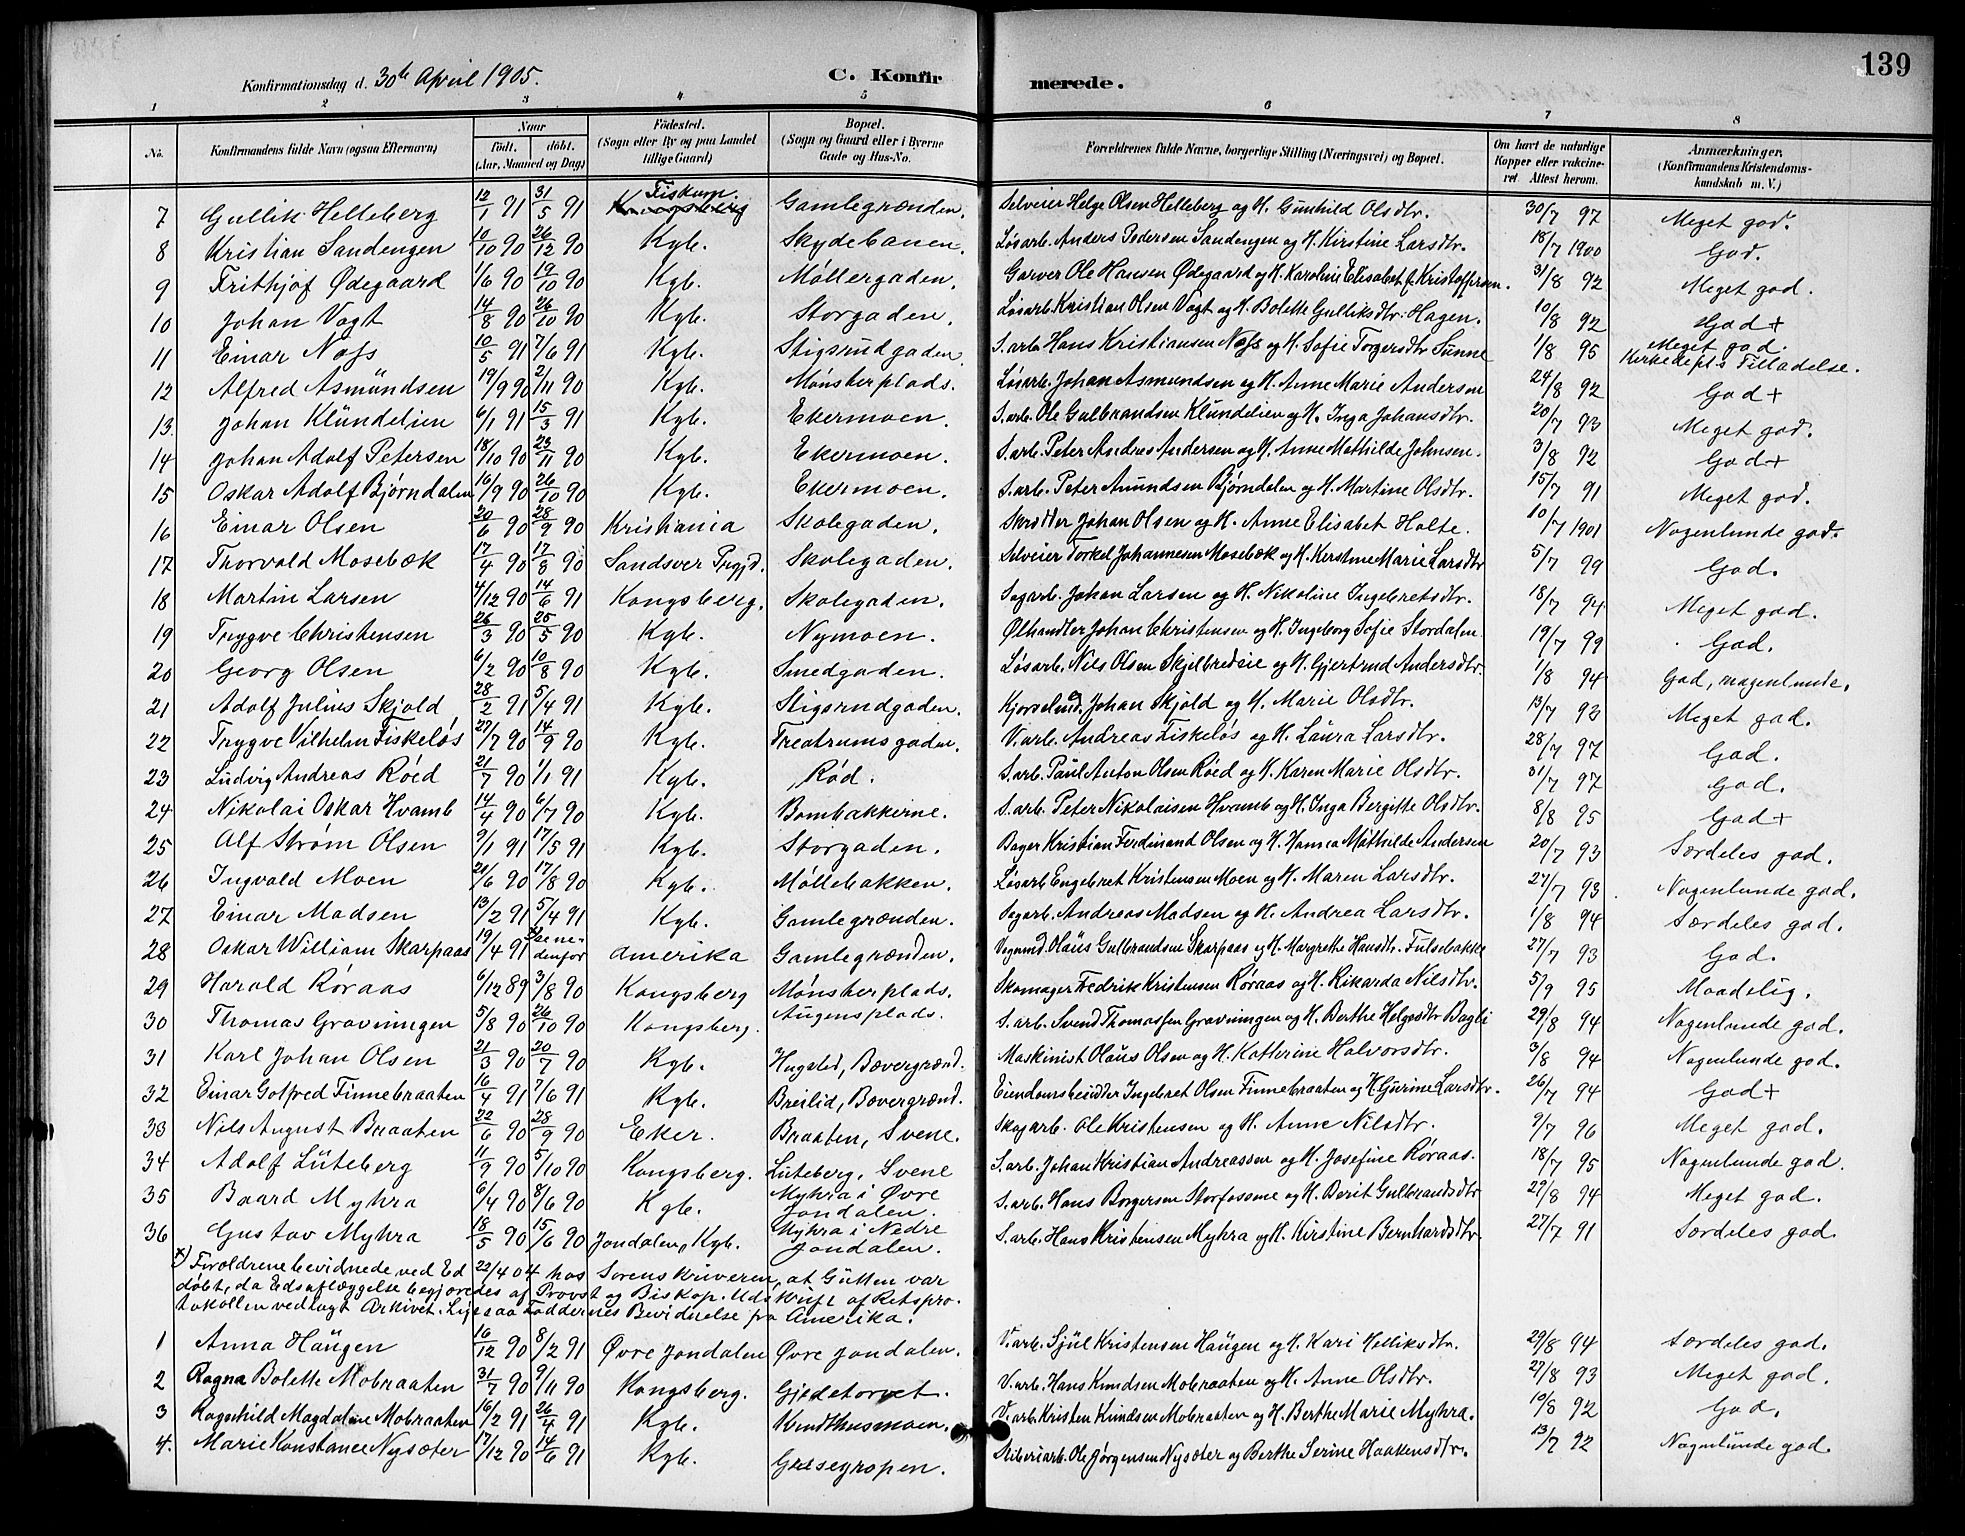 139
Konfirmationsdag d. 30te April 1905.
C. Konfirmerede.
1 2 3 4 5 6 7 8
No. Konfirmandens fulde Navn (ogsaa Efternavn) Naar født. døbt. (Aar, Maaned og Dag) Fødested. (Sogn eller By og paa Landet tillige Gaard) Bopæl. (Sogn og Gaard eller i Byerne Gade og Hus-No. Forældrenes fulde Navne, borgerlige Stilling (Næringsvei) og Bopæl. Om havt de naturlige Kopper eller vakcineret. Attest herom. Anmærkninger. (Konfirmandens Kristendomskundskab m. V.)
7 Gullik Helleberg 12/1 91 31/5 91 Fiskum Kongsberg Gamlegrænden. Sølveier Helge Olsen Helleberg og H. Gunhild Olsdtr. 30/7 97 Meget god.
8 Kristian Sandengen 10/10 90 26/12 90 Kgb. Skydebanen. Løsarb. Anders Pedersen Sandengen og H. Kirstine Larsdtr. 18/7 1900 God.
9 Frithjof Ødegaard 1/6 90 19/10 90 Kgb. Møllergaden. Garver Ole Hansen Ødegaard og H. Karoline Elisabet f. Kristoffersen. 31/8 92 Meget god.
10 Johan Vogt 14/8 90 26/10 90 Kgb. Storgaden. Løsarb. Kristian Olsen Vogt og H. Bolette Gulliksdtr. Hagen. 10/8 92 God +
11 Einar Næss 10/5 91 7/6 91 Kgb. Stigsrudgaden. S.arb. Hans Kristiansen Næss og H. Sofie Torgersdtr Sünne 1/8 95 Meget god. Kirkedepts Tilladelse.
12 Alfred Asmundsen 19/9 90 2/11 90 Kgb. Mønsterplads. Løsarb. Johan Asmundsen og H. Anne Marie Andersen 24/8 92 God +
13. Johan Klundelien 6/1 91 15/3 91 Kgb. Ekermoen. S.arb. Ole Gulbrandsen Klundelien og H. Inga Johansdtr. 20/7 93 Meget god.
14 Johan Adolf Petersen 18/10 90 23/11 90 Kgb. Ekermoen. S.arb. Peter Andreas Andersen og H. Anne Mathilde Johnsen. 3/8 92 God +
15 Oskar Adolf Bjørndalen 16/9 90 26/10 90 Kgb. Ekermoen. S.arb. Peter Amundsen Bjørndalen og H. Martine Olsdtr. 15/7 91 Meget god.
16 Einar Olsen 20/6 90 28/9 90 Kristiania Skolegaden. Skrädder Johan Olsen og H. Anne Elisabet Holte. 10/7 1901 Nogenlunde god.
17 Thorvald Mosebæk 17/4 90 17/8 90 Sandsver Prgjd. Skolegaden. Sølveier Torkel Johannesen Mosebæk og H. Kerstine Marie Larsdtr 5/7 99 God.
18 Martin Larsen 4/12 90 14/6 91 Kongsberg. Skolegaden. Sagarb. Johan Larsen og H. Nikoline Ingebretsdtr. 18/7 94 Meget god.
19 Trygve Christensen 26/3 90 25/5 90 Kgb. Nymoen. Ølhandler Johan Christensen og H. Ingeborg Sofie Stordalen. 19/7 99 God.
20 Georg Olsen 6/2 90 10/8 90 Kgb. Smedgaden. Løsarb. Nils Olsen Skjelbredeie og H. Gjertrud Andersdtr. 1/8 94 God, nogenlunde.
21 Adolf Julius Skjold 28/2 91 5/4 91 Kgb. Stigsrudgaden. Kjørsvend. Johan Skjold og H. Marie Olsdtr. 13/7 93 Meget god.
22 Trygve Vilhelm Fiskeløs 27/7 90 14/9 90 Kgb. Treatrumsgaden. V.arb. Andreas Fiskeløs og H. Laura Larsdtr. 28/7 97 God.
23 Ludvig Andreas Røed 21/7 90 1/1 91 Kgb. Rød. S.arb. Paul Anton Olsen Røed og H. Karen Marie Olsdtr. 31/7 97 God.
24 Nikolai Oskar Hvamb 14/4 90 6/7 90 Kgb. Bombakkerne. S.arb. Peter Nikolaisen Hvamb og H. Inga Bergitte Olsdtr. 8/8 95 God +
25 Alf Strøm Olsen 9/1 91 17/5 91 Kgb. Storgaden. Bager Kristian Ferdinand Olsen og H. Hanna Mathilde Andersen 20/7 93 Særdeles god.
26 Ingvald Moen 21/6 90 17/8 90 Kgb. Møllebakken. Løsarb. Engebret Kristensen Moen og H. Maren Larsdtr. 27/7 93 Nogenlunde god.
27 Einar Madsen 13/2 91 5/4 91 Kgb. Gamlegrænden. Sagarb. Andreas Madsen og H. Andrea Larsdtr. 1/8 94 Særdeles god.
28 Oskar William Skarpaas 19/4 91 x) se nedenfor Amerika Gamlegrænden. Vognmd. Olaus Gulbrandsen Skarpaas og H. Margrethe Hansdtr. Fulsebakke 27/7 93 God.
29 Harald Røraas 6/12 89 3/8 90 Kongsberg Mønsterplads. Skomager Fredrik Kristensen Røraas og H. Rikarda Nilsdtr. 5/9 95 Maadelig.
30 Thomas Gravningen 5/8 90 26/10 90 Kongsberg. Augensplads. S.arb. Svend Thomassen Gravningen og H. Berthe Helgesdtr Bagli 29/8 94 Nogenlunde god.
31 Karl Johan Olsen 21/3 90 20/7 90 Kgb. Hugsted, Bævergrænd. Maskinist Olaus Olsen og H. Katherine Halvorsdtr. 3/8 94 Nogenlunde god.
32 Einar Gotfred Finnebraaten 16/4 91 7/6 91 Kgb. Breilid, Bævergrænd. Eiendomsbesidder Ingebret Olsen Finnebraaten og H. Gurine Larsdtr. 26/7 94 God +
33 Nils August Braaten 22/6 90 28/9 90 Eker. Braaten, Svene. Skogarb. Ole Kristensen og H. Anne Nilsdtr. 9/7 96 Meget god.
34 Adolf Luteberg 11/9 90 5/10 90 Kongsberg. Luteberg, Svene S.arb. Johan Kristian Andreassen og H. Josefine Røraas. 18/7 95 Nogenlunde god.
35 Baard Myhra 6/4 90 8/6 90 Kgb. Myhra i Øvre Jondalen. S.arb. Hans Borgersen Storfossene og H. Berit Gulbrandsdtr 29/8 94 Meget god.
36 Gustav Myhra 18/5 90 15/6 90 Jondalen, Kgb. Myhra i Nedre Jondalen. S.arb. Hans Kristensen Myhra og H. Kirstine Bernhardsdtr. 27/7 91 Særdeles god.
x) Forældrene bevidnede ved Ed 22/4 04 hos Sorenskriveren, at Gutten var
døbt, da Edsaflæggelse begjæredes af Provst og Biskop. Udskrift af Retspro-
tokollen vedlagt Arkivet. Ligesaa Faddernes Bevidnelse fra Amerika.
1 Anna Haugen 16/12 90 8/2 91 Øvre Jondalen Øvre Jondalen. V.arb. Sjul Kristensen Haugen og H. Kari Helliksdtr. 29/8 94 Særdeles god.
2 Ragna Bolette Mobraaten 31/7 90 9/11 90 Kongsberg. Gjedetorvet. V.arb. Hans Knudsen Mobraaten og H. Anne Olsdtr. 27/8 93 Meget god.
3 Ragnhild Magdaline Mobraaten 16/2 91 26/4 91 Kgb. Kvidthusmoen. V.arb. Kristen Knudsen Mobraaten og H. Berthe Marie Myhra. 19/8 92 God.
4. Marie Konstance Nysæter 17/12 90 14/6 91 Kgb. Gaasegropen. Sliberiarb. Ole Jørgensen Nysæter og Berthe Serine Haakensdtr. 13/7 92 Nogenlunde god.